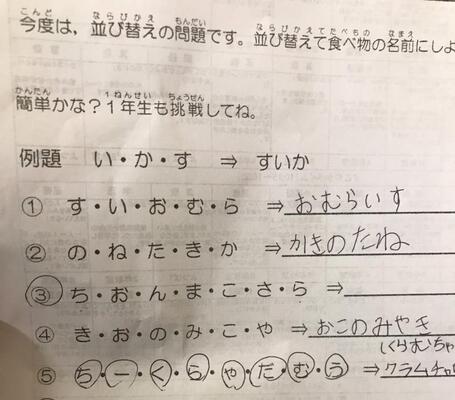 今度は，並び替えの問題です。並び替えて食べ物の名前にしよ
簡単かな？1年生も挑戦してね。
例題　い・か・す　⇒　すいか
① す・い・お・む・ら　⇒おむらいす
② の・ね・た・き・か　⇒かきのたね
③ ち・お・ん・ま・こ・さ・ら　⇒
④ き・お・の・み・こ・や　⇒おこのみやき
(くらむちゃ
⑤ ち・ー・く・ら・ゃ・だ・む・う　⇒クラムチャ